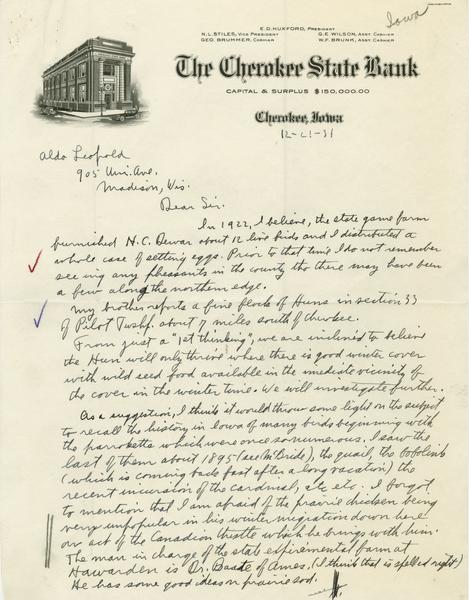 Iowa
E. D. HUXFORD, PRESIDENT
N. L. STILES, VICE PRESIDENT G. E. WILSON, ASST. CASHIER
GEO. BRUMMER, CASHIER W. F. BRUNK, ASST. CASHIER
The Cherokee State Bank
CAPITAL & SURPLUS $150,000.00
Cherokee, Iowa
12-21-31
Aldo Leopold
905 Uni. Ave.
Madison, Wis.
Dear Sir.
In 1922, I believe, the state game farm
furnished H.C. Dewar about 12 live birds and I distributed a
whole case of setting eggs. Prior to that time I do not remember
seeing any pheasants in the county tho there may have been
a few along the northern edge.
My brother reports a fine flock of Huns in section 33
of Pilot Twshp. about 7 miles south of Cherokee.
From just a "1st thinking", we are inclined to believe
the Hun will only thrive where there is good winter cover
with wild seed food available in the imediate vicinity of
the cover in the winter time. We will investigate further.
As a suggestion, I think it would throw some light on the subject
to recall the history in Iowa of many birds beginning with
the parroketts which were once so numerous, I saw the
last of them about 1895 (see McBride), the quail, the bobolink
(which is coming back fast after a long vacation) the
recent incursion of the cardinal, etc etc. I forgot
to mention that I am afraid of the prairie chicken being
very unpopular in his winter migration down here
on act of the Canadian thistle which he brings with him.
The man in charge of the state experimental farm at
Hawarden is Dr. of Ames, (I think that is spelled right)
He has some good ideas on prairie sod.